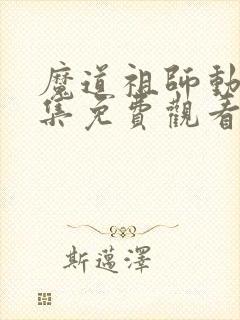 魔道祖師動
集免費觀看
斯邁澤